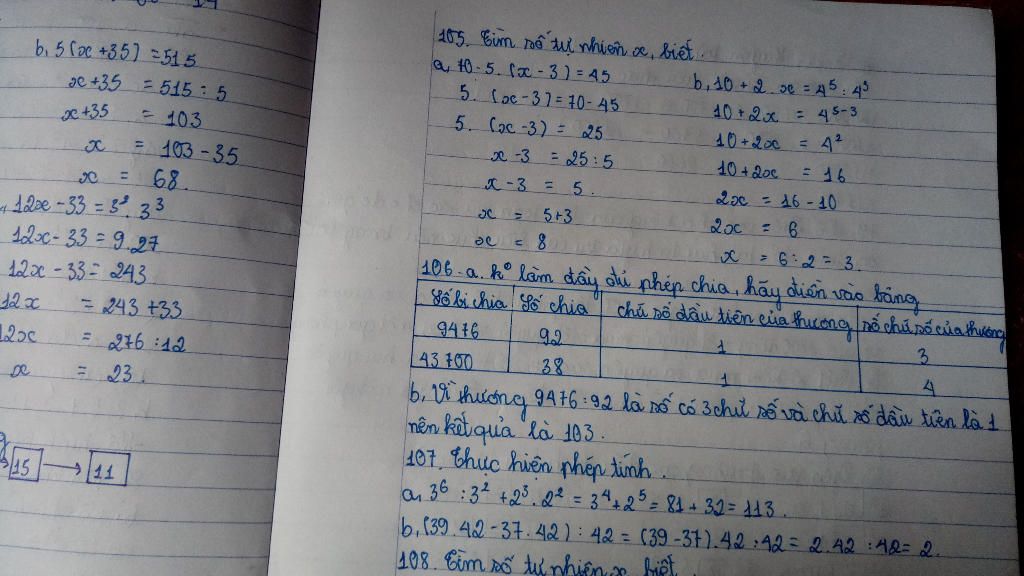 b, 5(x+35) = 515
x+35 = 515 : 5
x+35 = 103
x = 103 - 35
x = 68.
12x - 33 = 3². 3³
12x - 33 = 9.27
12x - 33 = 243
12x = 243 + 33
12x = 276 : 12
x = 23.
15 → 11
105. Tìm số tự nhiên x, biết.
a, 70 - 5. (x - 3) = 45
5. (x - 3) = 70 - 45
5. (x - 3) = 25
x - 3 = 25 : 5
x - 3 = 5.
x = 5+3
x = 8
b, 10 + 2. x = 4⁵ : 4³
10 + 2x = 4⁵⁻³
10 + 2x = 4²
10 + 2x = 16
2x = 16 - 10
2x = 6
x = 6 : 2 = 3.
106. a. k° làm đầy đủ phép chia, hãy điền vào bảng
Số bị chia Số chia chữ số đầu tiên của thương số chữ số của thương
9476 92 1 3
43700 38 1 4
b, Vì thương 9476 : 92 là số có 3 chữ số và chữ số đầu tiên là 1
nên kết quả là 103.
107. Thực hiện phép tính.
a, 3⁶ : 3² + 2³. 2² = 3⁴ + 2⁵ = 81 + 32 = 113.
b, (39. 42 - 37. 42) : 42 = (39 - 37). 42 : 42 = 2. 42 : 42 = 2.
108. Tìm số tự nhiên x, biết.